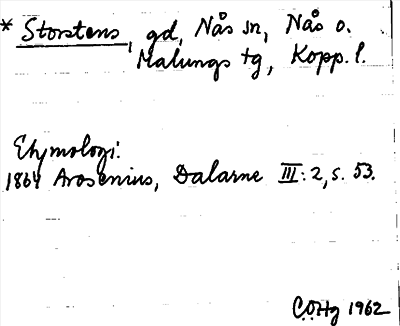 * Storstens, gd, Nås sn, Nås o.
Malungs tg, Kopp. l.
Etymologi:
1864 Arosenius, Dalarne III:2, s. 53.
C.O.Hg 1962